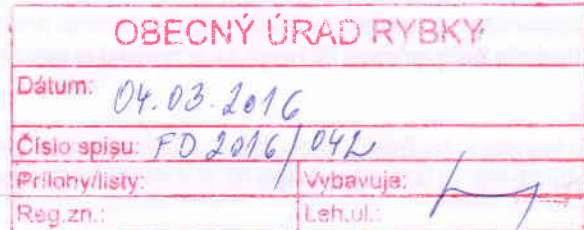 OBECNÝ ÚRAD RYBKY
Dátum: 04.03.2016
Číslo spisu: FD 2016/042
Prílohy/listy: Vybavuje:
Reg.zn.: Leh.ul.: